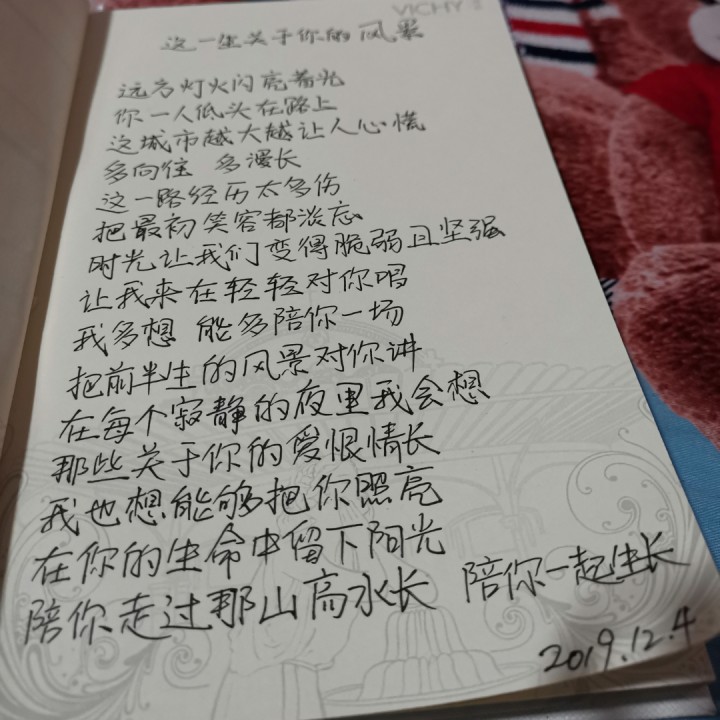 VICHY
这一生关于你的风景
远方灯火闪亮着光
你一人低头在路上
这城市越大越让人心慌
多向往 多漫长
这一路经历太多伤
把最初笑容都淡忘
时光让我们变得脆弱且坚强
让我来在轻轻对你唱
我多想 能多陪你一场
把前半生的风景对你讲
在每个寂静的夜里我会想
那些关于你的爱恨情长
我也想能够把你照亮
在你的生命中留下阳光
陪你走过那山高水长 陪你一起生长
2019.12.4